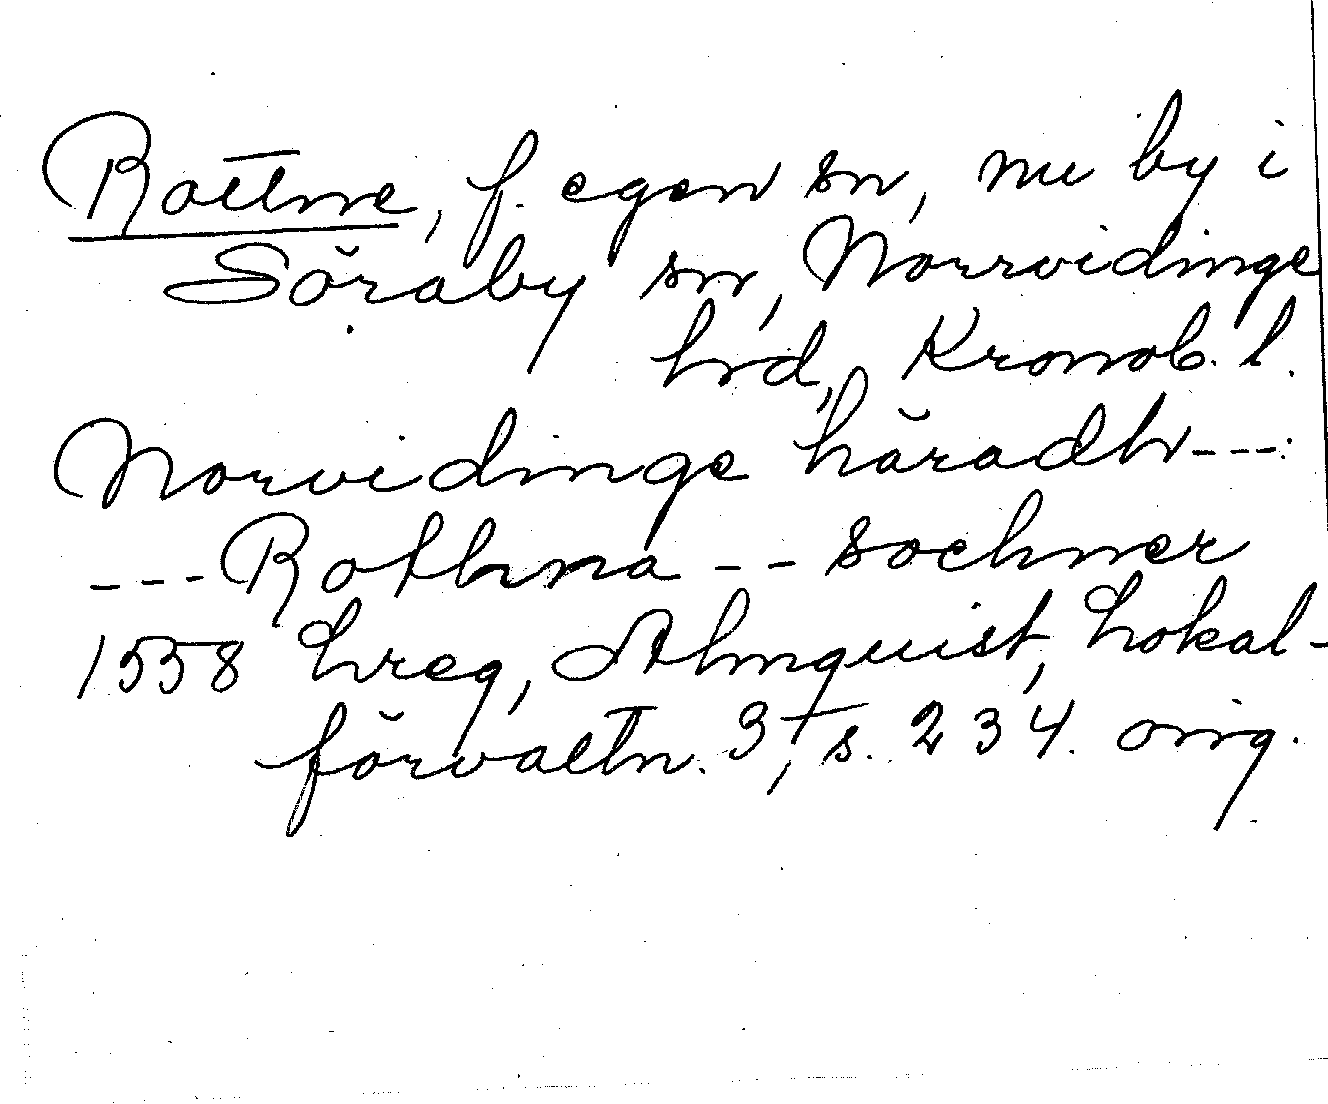 Rottne, f. egen sn, nu by i
Söraby sn, Norrvidinge
hrd, Kronob. l.
Norvidinge häradh---:
---Rothna -- sochner
1558 hreg, Almquist, Lokal-
förvaltn. 3, s. 234. orig.